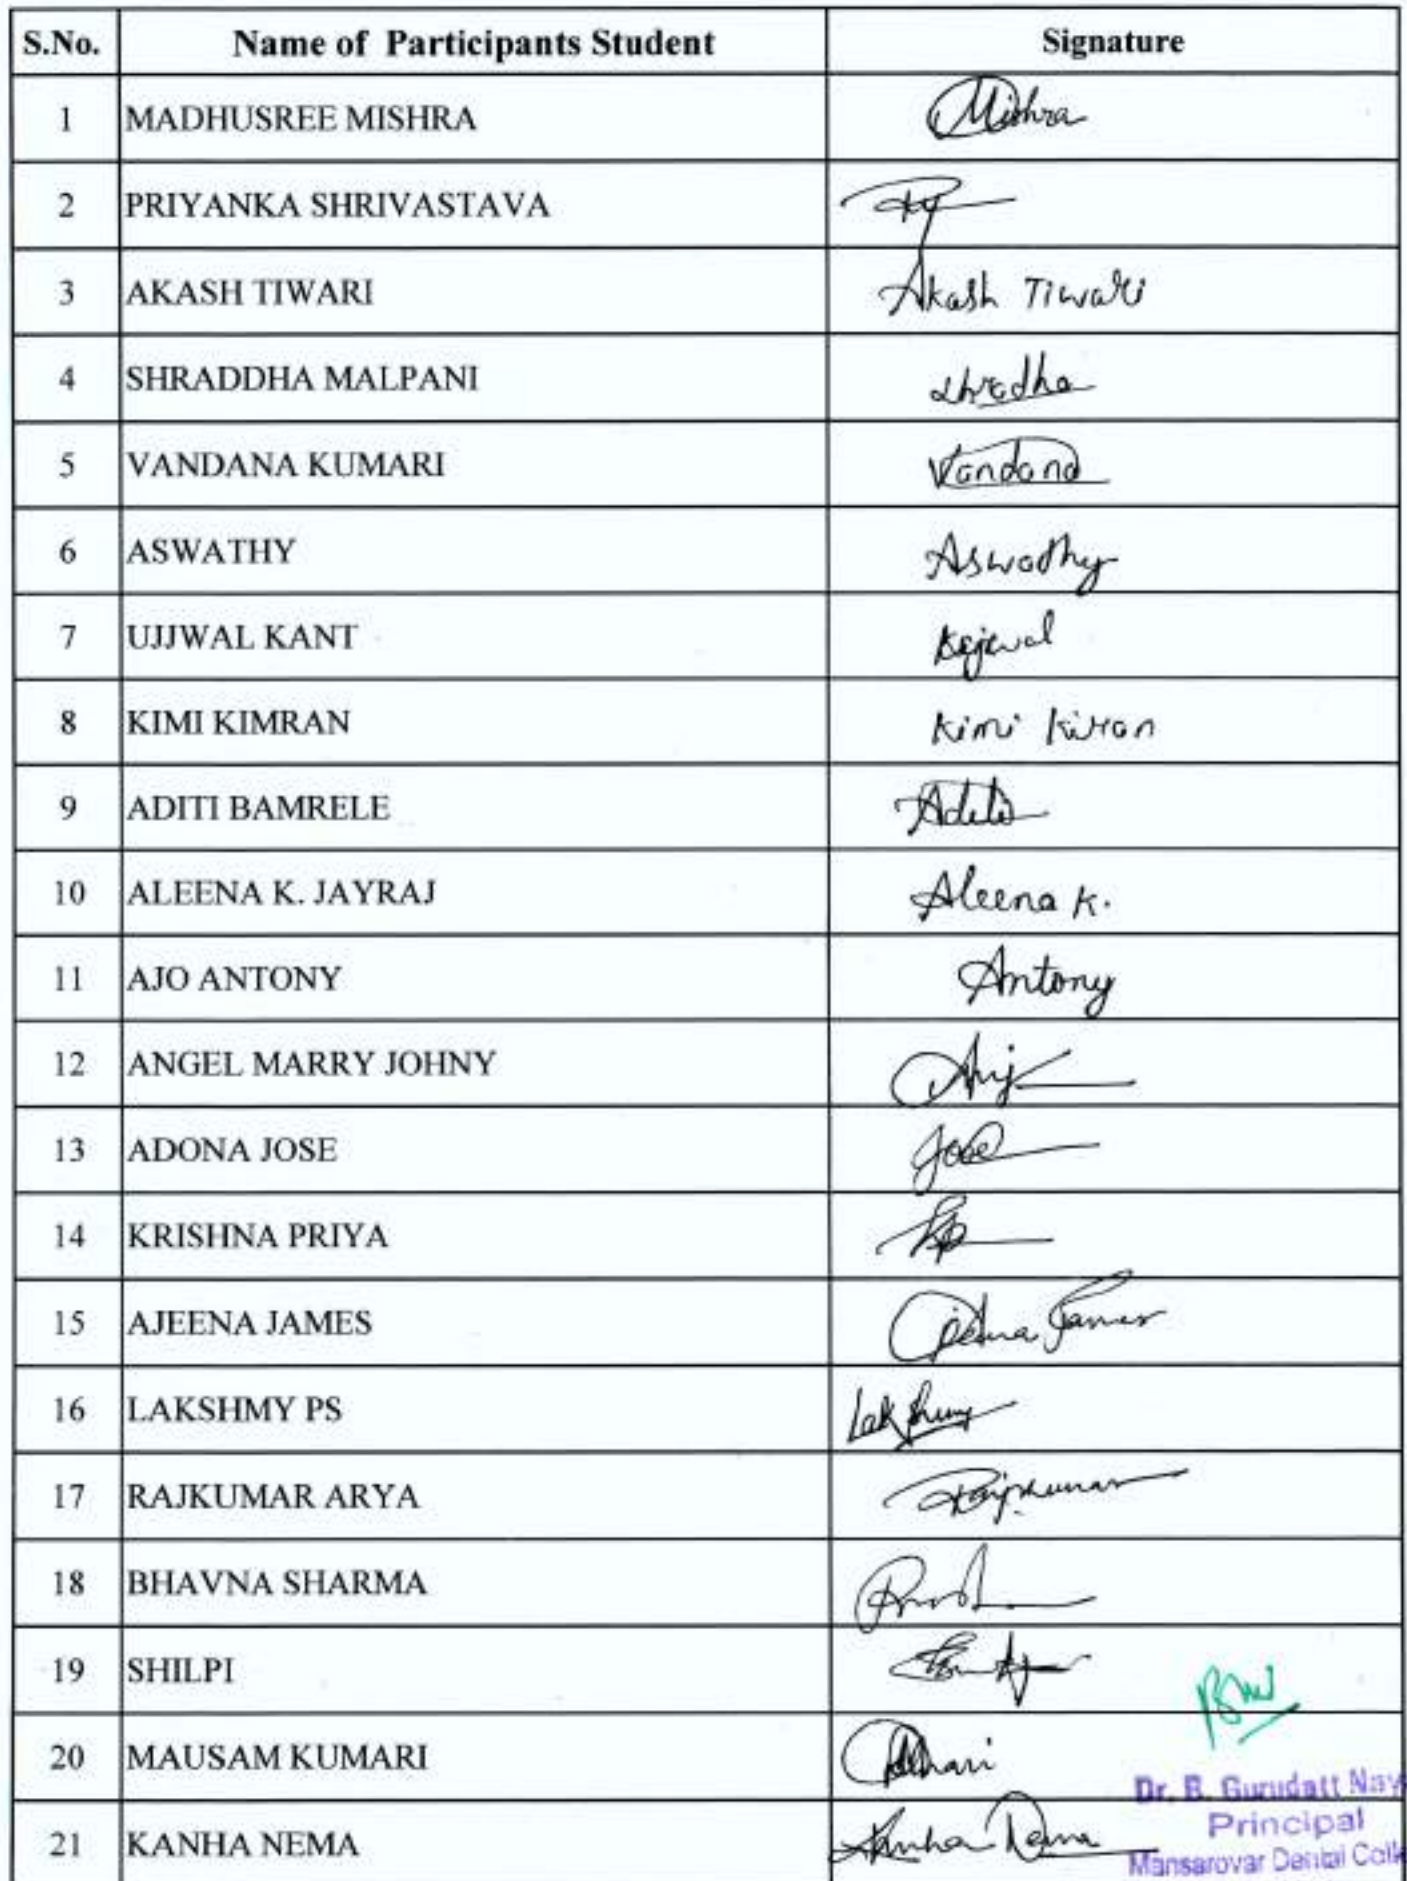 S.No. Name of Participants Student Signature
1 MADHUSREE MISHRA Mishra
2 PRIYANKA SHRIVASTAVA
3 AKASH TIWARI Akash Tiwari
4 SHRADDHA MALPANI Shradha
5 VANDANA KUMARI Vandana
6 ASWATHY Aswathy
7 UJJWAL KANT
8 KIMI KIMRAN Kimi Kiran
9 ADITI BAMRELE Aditi
10 ALEENA K. JAYRAJ Aleena K.
11 AJO ANTONY Antony
12 ANGEL MARRY JOHNY
13 ADONA JOSE Jose
14 KRISHNA PRIYA
15 AJEENA JAMES James
16 LAKSHMY PS Lakshmy
17 RAJKUMAR ARYA Rajkumar
18 BHAVNA SHARMA
19 SHILPI
20 MAUSAM KUMARI
Dr. B. Gurudatt Nay
21 KANHA NEMA Kanha Nema
Principal
Mansarovar Dental Coll